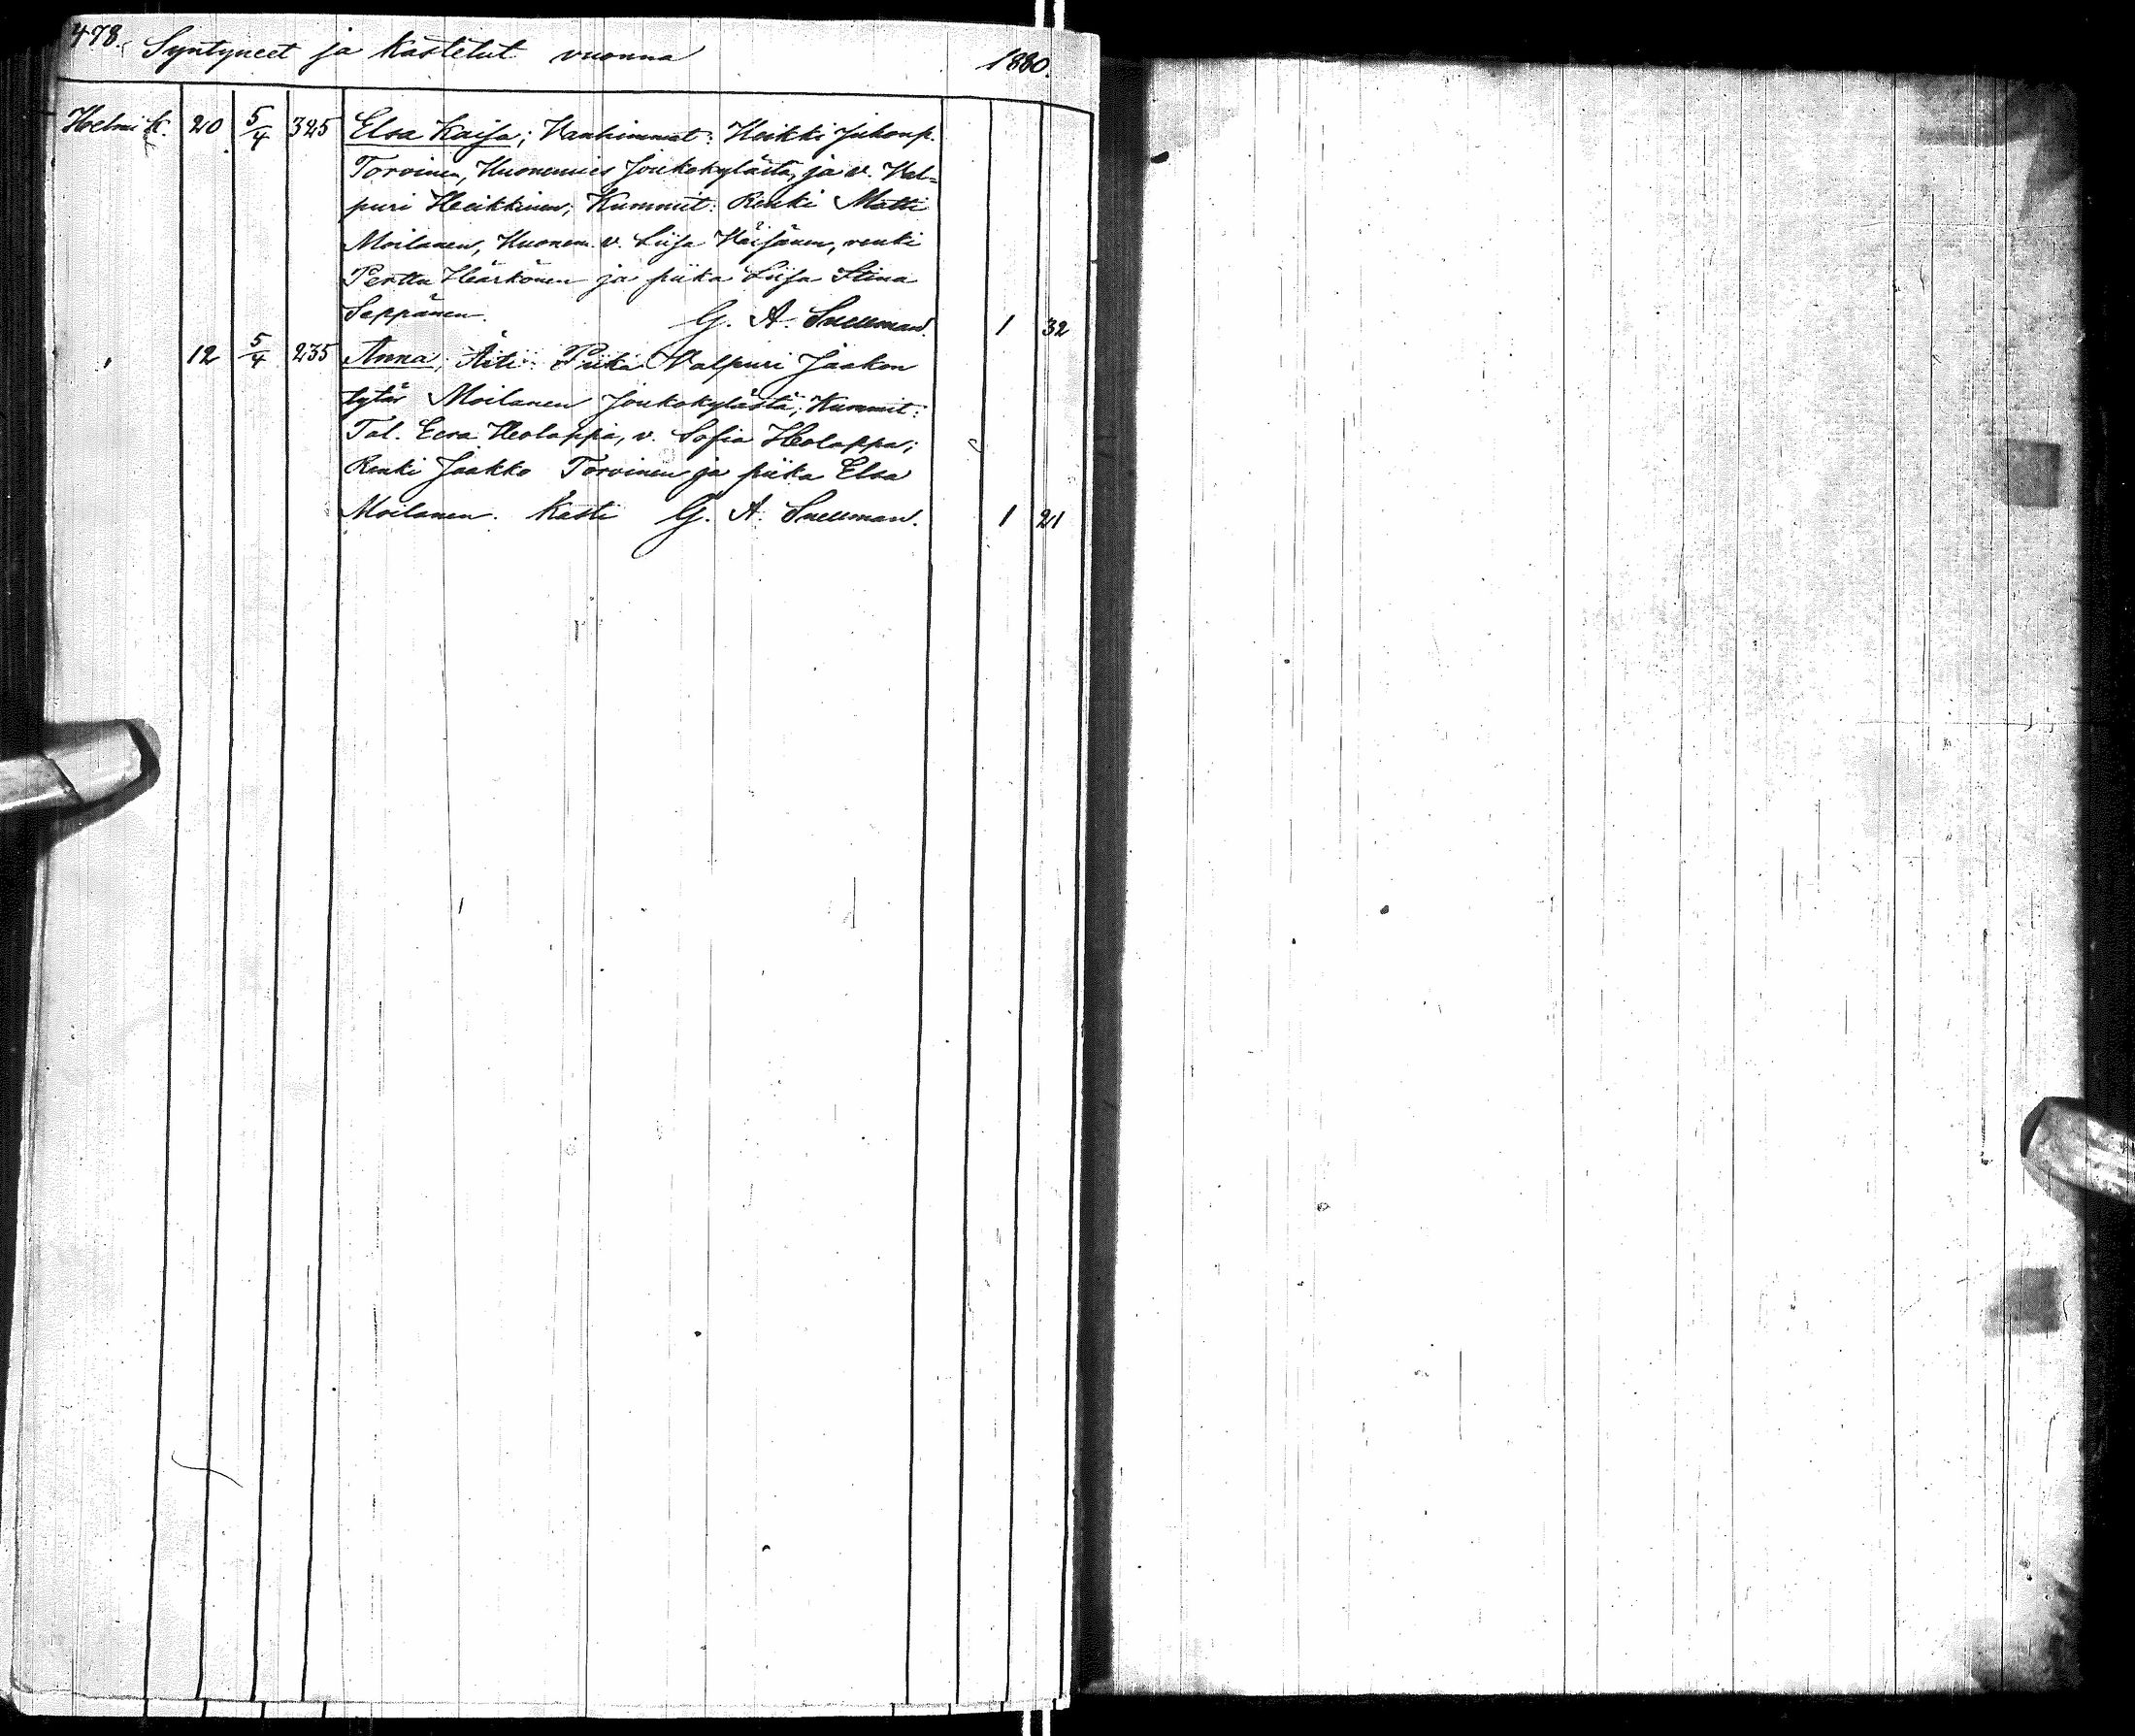 478. Syntyneet ja kastetut vuonna 1880.
Helmi k. 20 5/4 325 Elsa Kaisa; Vanhimmat: Heikki Juhonp.
Torvinen, Huonemies Joukokylästä, ja v. Val-
puri Heikkinen; Kummit: Renki Matti
Moilanen, Huonem. v. Liisa Häisänen, renki
Perttu Härkönen ja piika Liisa Stina
Seppänen. G. A. Snellman. 1 32
" 12 5/4 235 Anna; Äiti: Piika Valpuri Jaakon
tytär Moilanen Joukokylästä; Kummit:
Tal. Eera Holappa, v. Sofia Holappa;
Renki Jaakko Torvinen ja piika Elsa
Moilanen. Kasti G. A. Snellman. 1 21